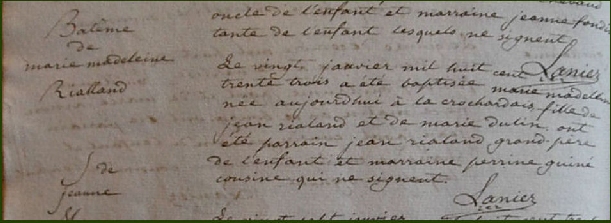 Batême
de
marie madeleine
Rialland
oncle de l'enfant et marraine jeanne
tante de l'enfant lesquels ne signent
Lanier
Le vingt janvier mil huit cent
trente trois a été baptisée marie madeleine
née aujourdhui à la crochardais fille de
jean rialand et de marie dulin ont
été parrain jean rialand grand père
de l'enfant et marraine perrine guiné
cousine qui ne signent
Lanier
de
jeanne
Le vingt sept janvier